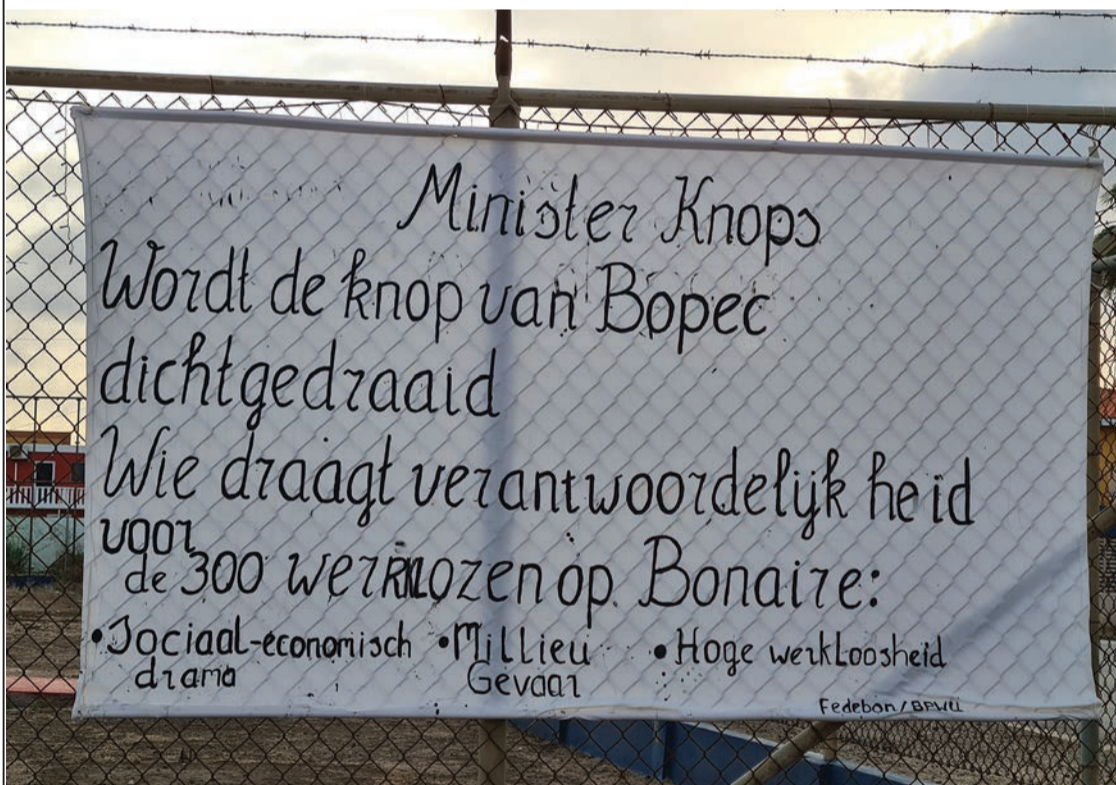 Minister Knops
Wordt de knop van Bopec
dichtgedraaid
Wie draagt verantwoordelijk heid
voor
de 300 werklozen op Bonaire:
• Sociaal-economisch • Millieu • Hoge werkloosheid
drama Gevaar
Fedebon/BPWU